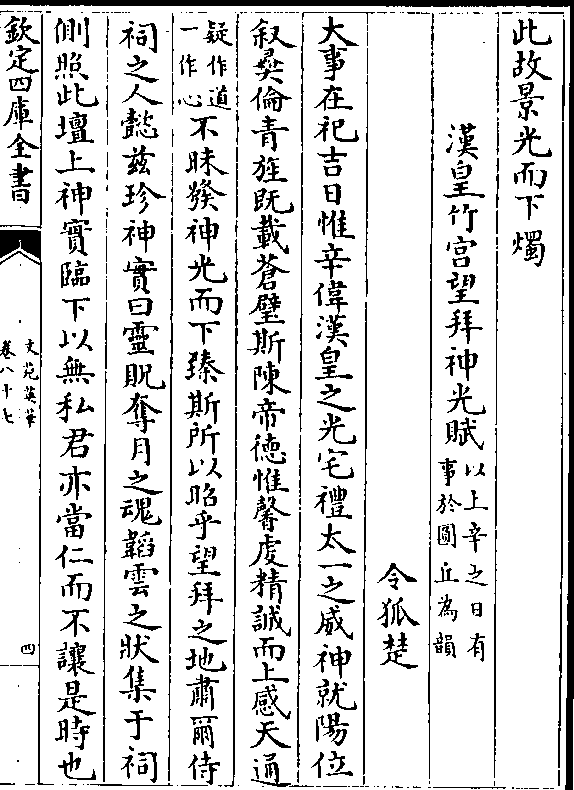 此故景光而下燭
漢皇竹宫望拜神光賦以上辛之日有事於圜丘為韻
令狐楚
大事在祀吉日惟辛偉漢皇之光宅禮太一之威神就陽位
叙彞倫青旌既載蒼璧斯陳帝德惟馨虔精誠而上感天通
疑作道一作心不昧發神光而下臻斯所以昭乎望拜之地肅爾侍
祠之人懿兹珍神實曰靈貺奪月之魂韜雲之狀集于祠
側照此壇上神實臨下以無私君亦當仁而不讓是時也
欽定四庫全書
文苑英華
卷八十七
四